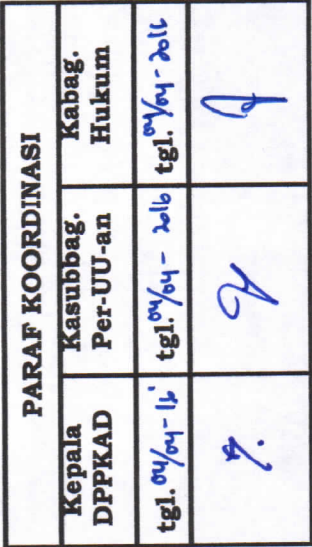 PARAF KOORDINASI
Kepala DPPKAD
Kasubbag. Per-UU-an
Kabag. Hukum
tgl. 04/04-16'
tgl. 04/04 - 2016
tgl. 04/04 - 2016